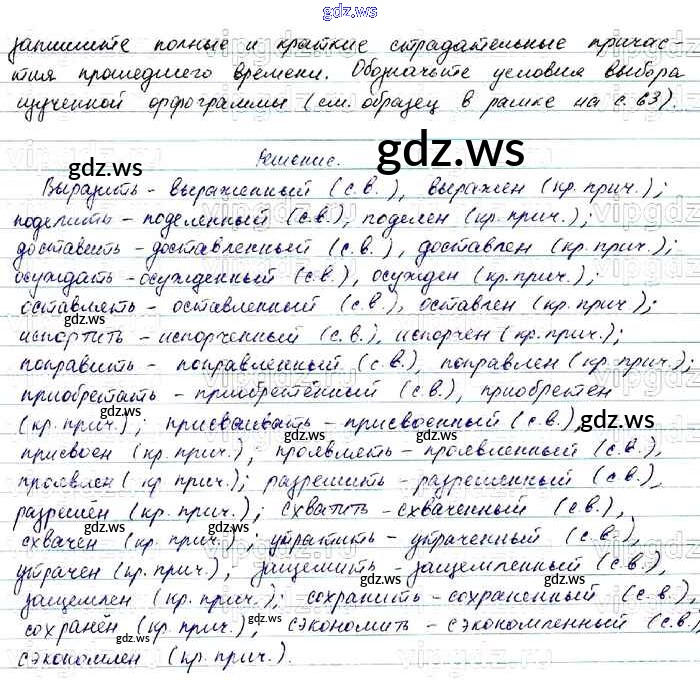 gdz.ws
запишите полные и краткие страдательные причас-
тия прошедшего времени. Обозначьте условия выбора
изученной орфограммы (см. образец в рамке на с. 63).
gdz.ws
gdz.ws
Решение.
Выразить - выраженный (с.в.), выражен (кр. прич.);
поделить - поделенный (с.в.), поделен (кр. прич.);
доставить - доставленный (с.в.), доставлен (кр. прич.);
осуждать - осужденный (с.в.), осужден (кр. прич.);
оставлять - оставленный (с.в.), оставлен (кр. прич.);
gdz.ws
испортить - испорченный (с.в.), испорчен (кр. прич.);
поправить - поправленный (с.в.), поправлен (кр. прич.);
приобретать - приобретённый (с.в.), приобретен
gdz.ws
(кр. прич.); присваивать - присвоенный (с.в.),
gdz.ws
gdz.ws
присвоен (кр. прич.); проявлять - проявленный (с.в.),
проявлен (кр. прич.); разрешить - разрешенный (с.в.),
gdz.ws
разрешён (кр. прич.); схватить - схваченный (с.в.),
схвачен (кр. прич.); утратить - утраченный (с.в.),
gdz.ws
утрачен (кр. прич.); защемить - защемленный (с.в.),
gdz.ws
защемлен (кр. прич.); сохранить - сохраненный (с.в.),
сохранён (кр. прич.); сэкономить - сэкономленный (с.в.)
gdz.ws
сэкономлен (кр. прич.).